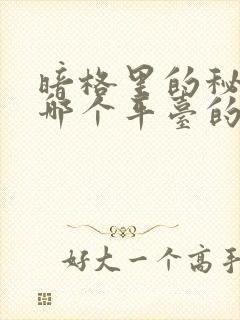 暗格里的秘
那个车台的
好大一个高手